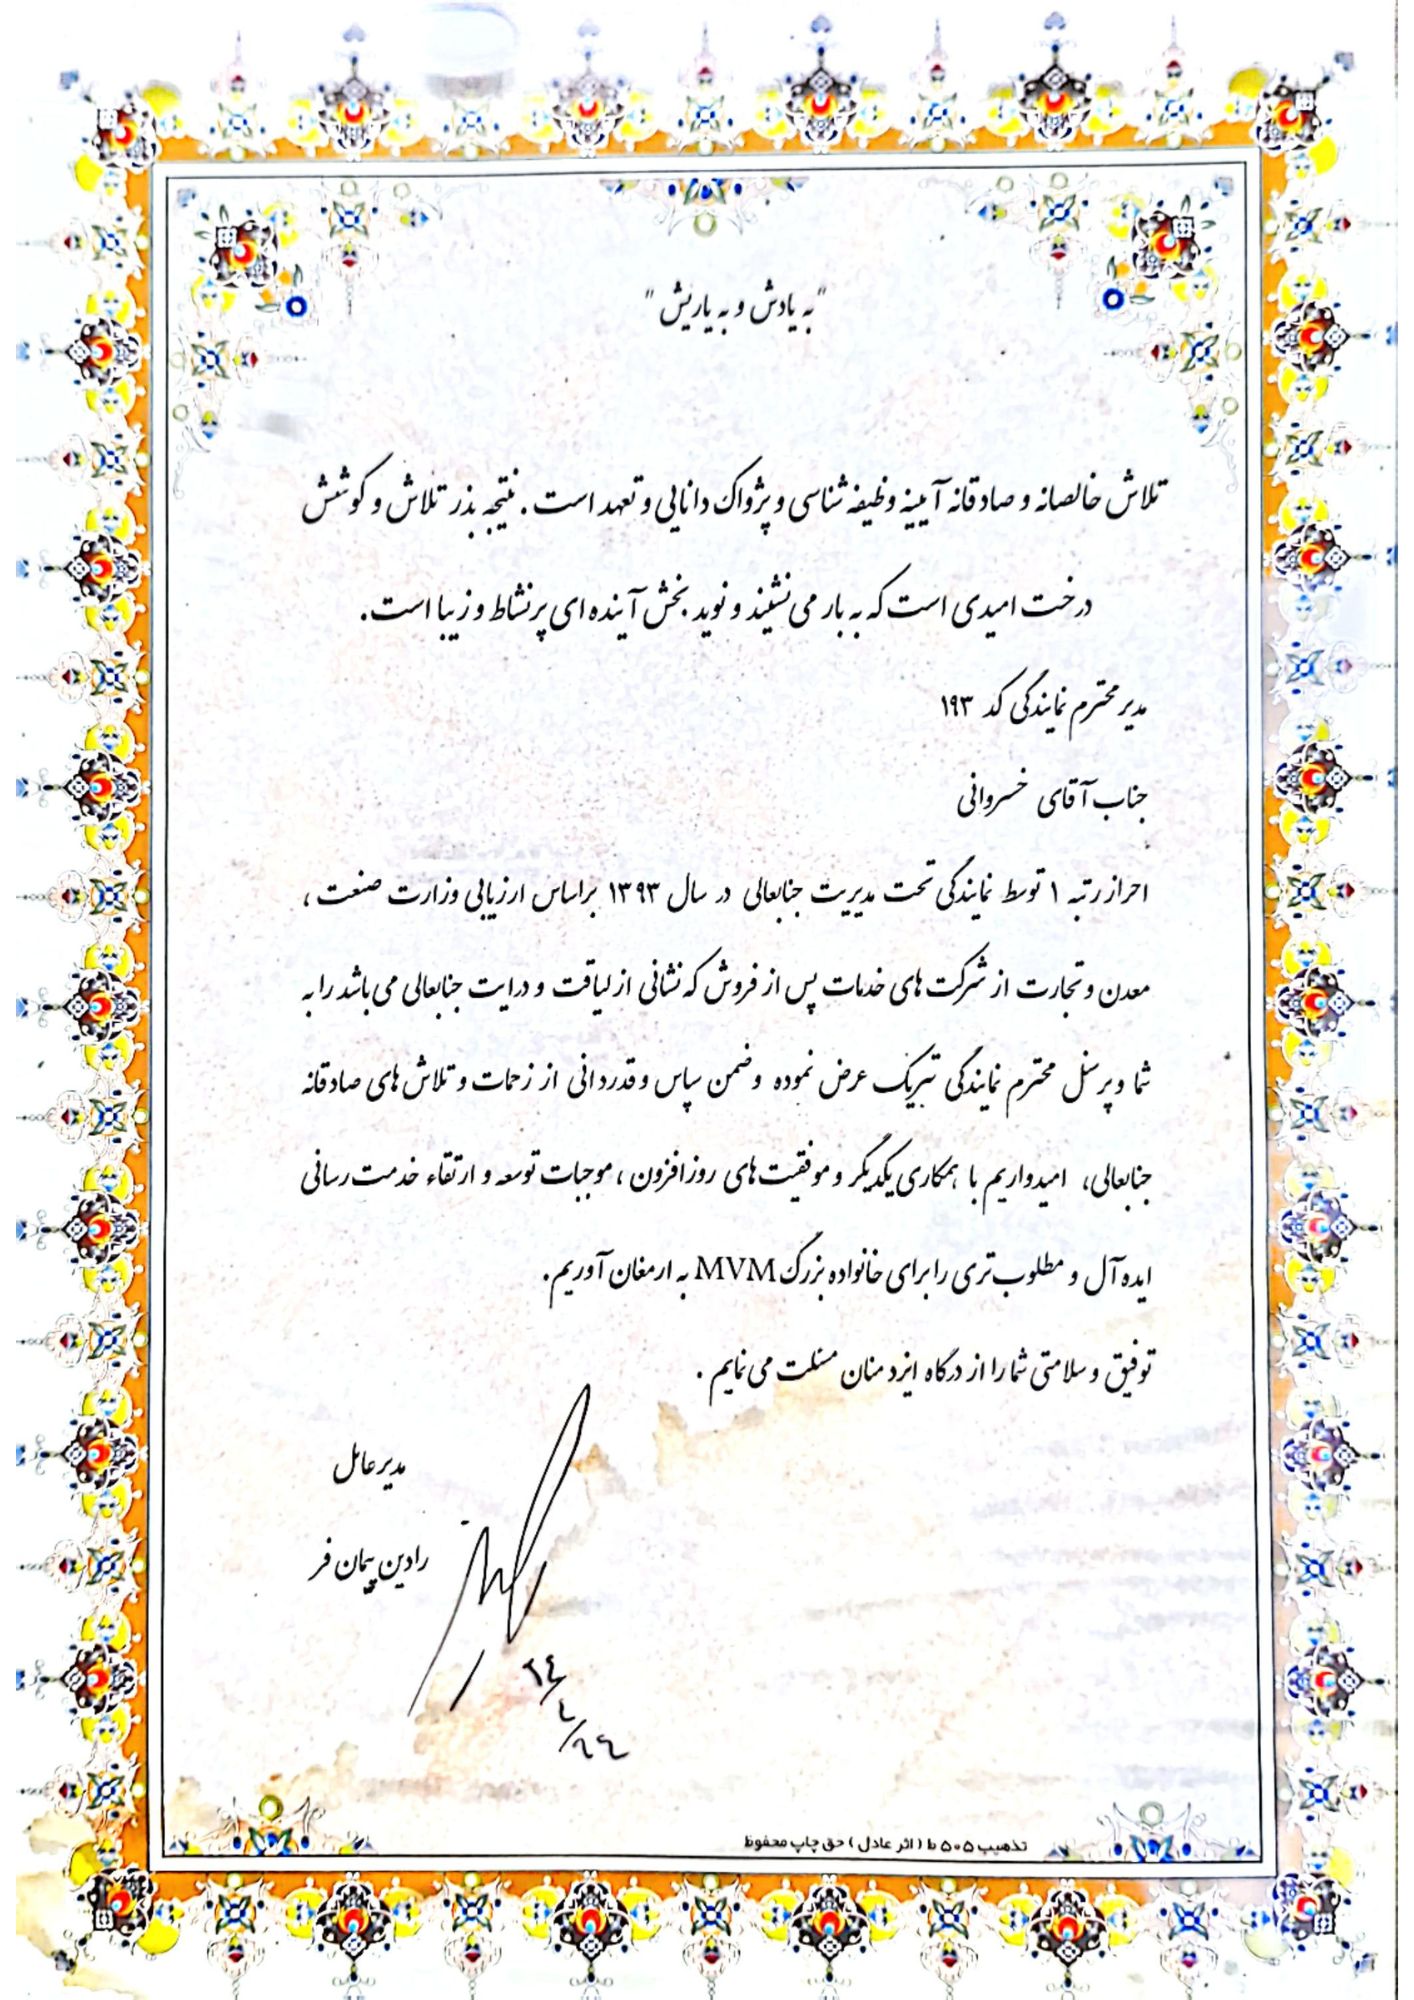 "به یادش و به یاریش"
تلاش خالصانه و صادقانه آیینه وظیفه شناسی و پژواک دانایی و تعهد است. نتیجه بذر تلاش و کوشش
درخت امیدی است که به بار می نشیند و نوید بخش آینده ای پر نشاط و زیبا است.
مدیر محترم نمایندگی کد ۱۹۳
جناب آقای خسروانی
احراز رتبه ۱ توسط نمایندگی تحت مدیریت جنابعالی در سال ۱۳۹۳ براساس ارزیابی وزارت صنعت ،
معدن و تجارت از شرکت های خدمات پس از فروش که نشانی از لیاقت و درایت جنابعالی می باشد را به
شما و پرسنل محترم نمایندگی تبریک عرض نموده وضمن سپاس وقدردانی از زحمات و تلاش های صادقانه
جنابعالی، امیدواریم با همکاری یکدیگر و موفقیت های روزافزون ، موجبات توسعه و ارتقاء خدمت رسانی
ایده آل و مطلوب تری را برای خانواده بزرگ MVM به ارمغان آوریم.
توفیق و سلامتی شما را از درگاه ایزد منان مسئلت می نمایم .
مدیر عامل
رادین پیمان فر
تذهیب ۵۰۵ ط ( اثر عادل ) حق چاپ محفوظ